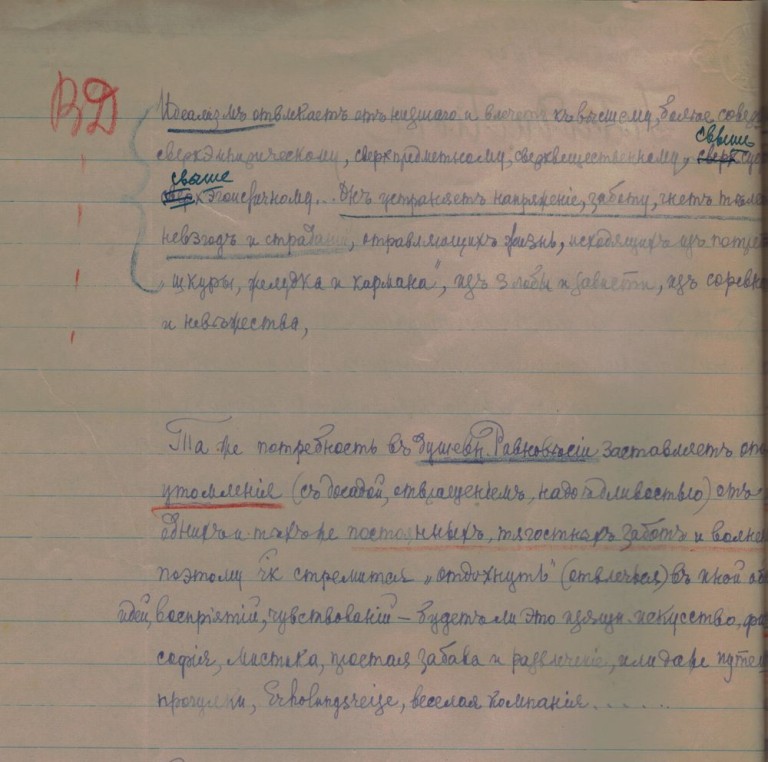 ВД
Идеализмъ отвлекаетъ отъ низшаго и влечетъ къ высшему, более
свыше
сверхэмпирическому, сверхпредметному, сверхвещественному, сверх
свыше
сверхэгоистичному... Онъ устраняетъ напряженіе, заботу, гнетъ
невзгодъ и страданій, отравляющихъ жизнь, исходящихъ изъ
„шкуры, желудка и кармана", изъ злобы и зависти, изъ
и невѣжества,
Та же потребность въ Душевн. Равновѣсіи заставляетъ
утомленія (съ досадой, отвращеніемъ, надоѣдливостью) отъ
однихъ и тѣхъ же постоянныхъ, тягостныхъ заботъ и
поэтому Чк стремится „отдохнуть" (отвлечься) въ иной
идей, воспріятій, чувствованій — будетъ ли это изящн. искусство,
софія, Мистика, простая забава и развлеченіе, или даже
прогулки, Erholungsreise, веселая компанія......